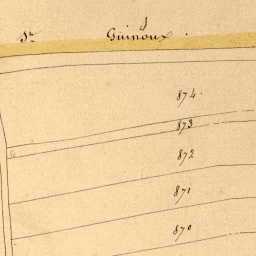 St Guinoux.
874.
873
872
871
870